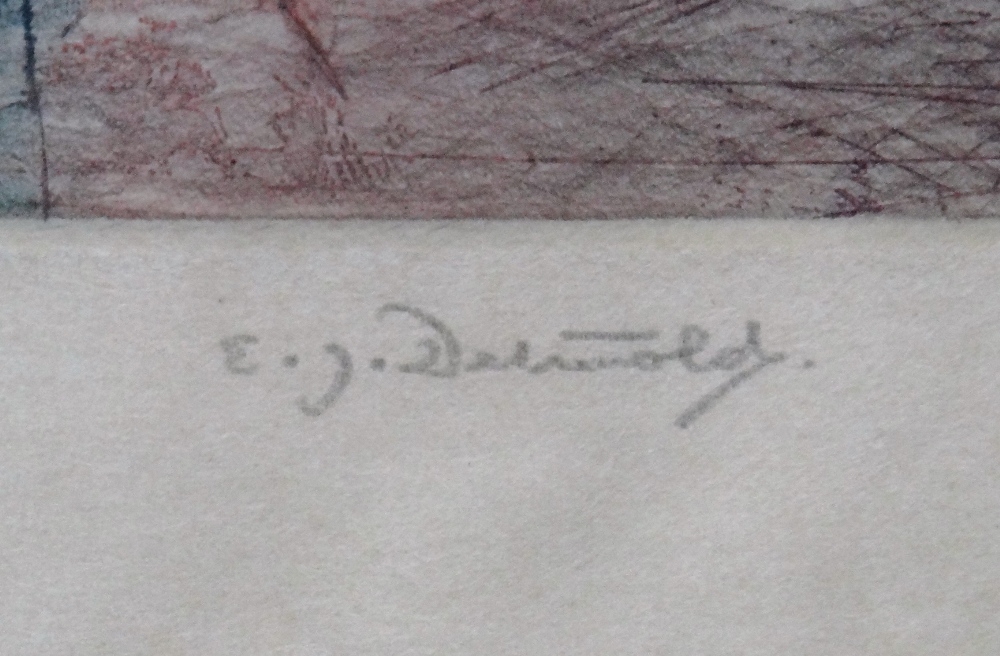 E. J. Detmold.